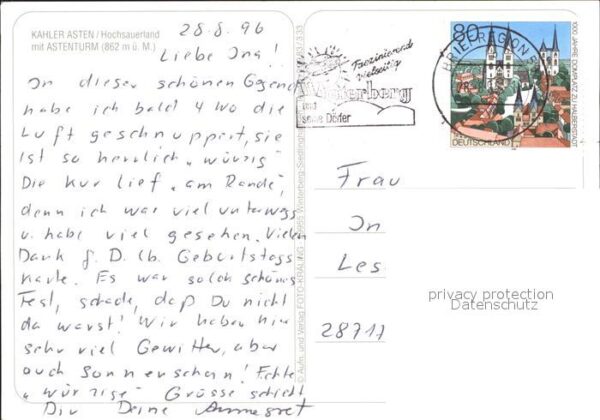 KAHLER ASTEN / Hochsauerland
mit ASTENTURM (862 m ü. M.)
28.8.96
Liebe Ina!
In dieser schönen Gegend
habe ich bald 4 Wo die
Luft geschnuppert, sie
ist so herrlich „würzig".
Die Kur lief „am Rande",
denn ich war viel unterwegs
u. habe viel gesehen. Vielen
Dank f. D. lb. Geburtstags
karte. Es war solch schönes
Fest, schade, daß Du nicht
da warst! Wir haben hier
sehr viel Gewitter, aber
auch Sonnenschein! Echte
„würzige" Grüsse schickt
Dir Deine Annegret
© Aufn. und Verlag FOTO-KRÄLING
Faszinierend
vielseitig
Winterberg
und
seine Dörfer
BRIEFREGION
80
DEUTSCHLAND
1000 JAHRE DOMPLATZ ZU HALBERSTADT
Frau
In
Les
28717
privacy protection
Datenschutz